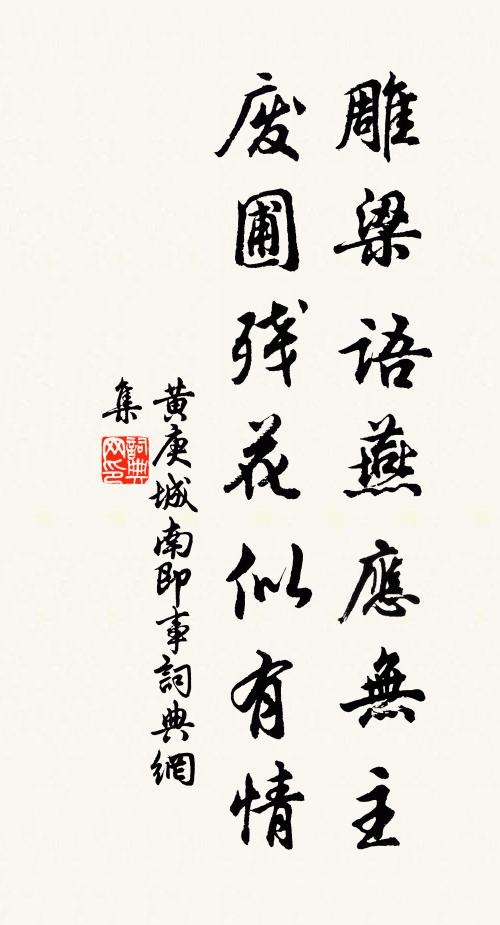 雕梁語燕應無主
废圃残花似有情
黄庚城南即事詞典網
集
詞典網印